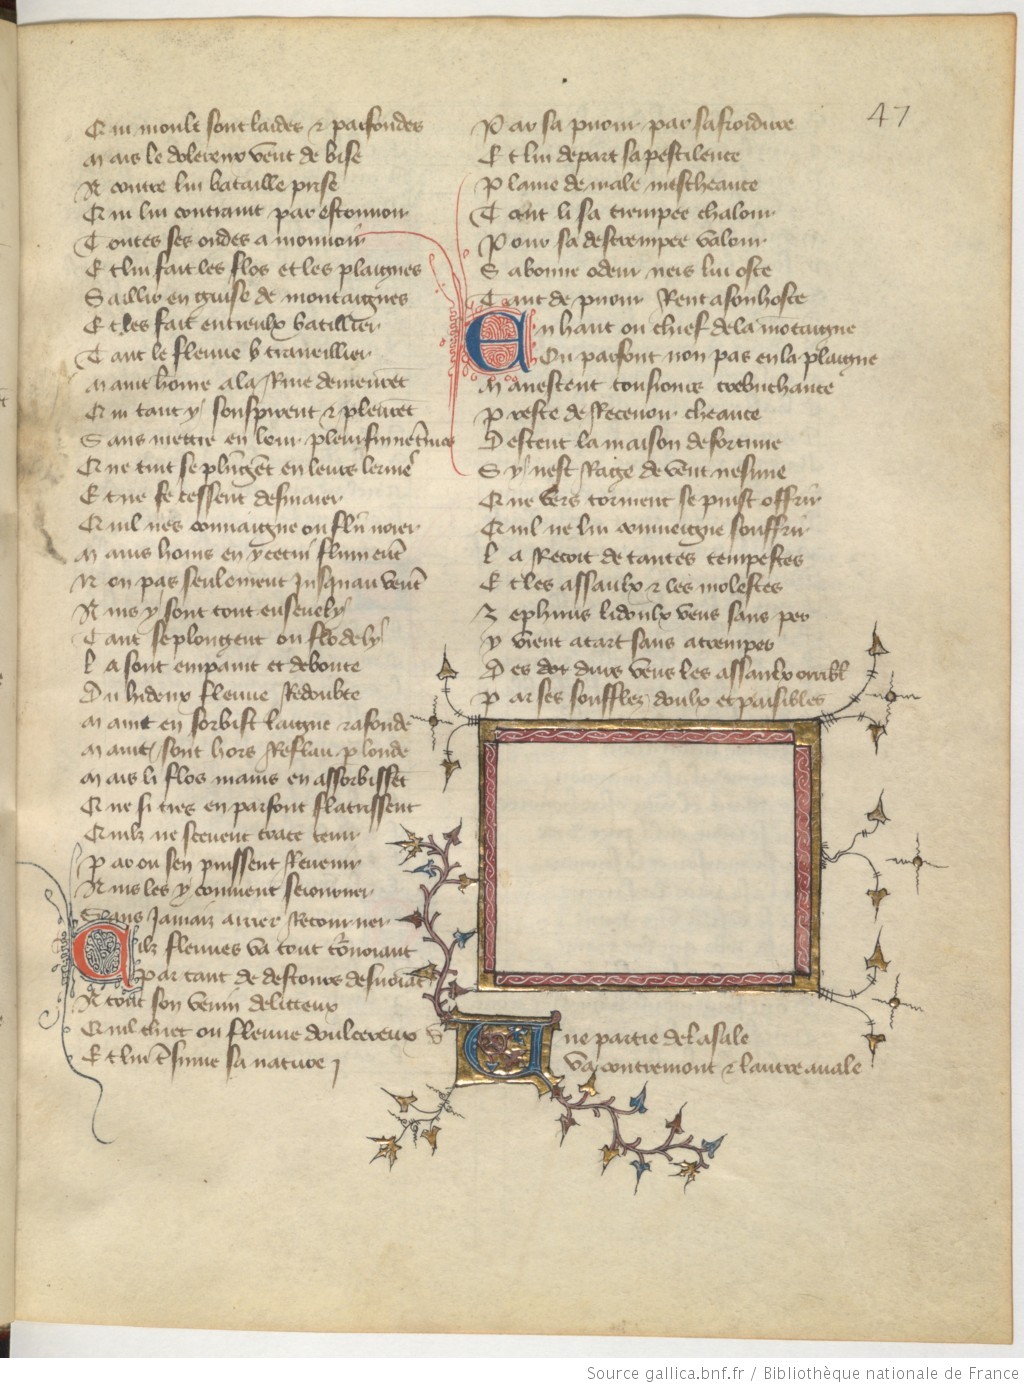 Qui moult sont laides ⁊ parfondes
Mais le dolereux vent de bise
A contre lui bataille prise
Qui lui contraint par estouuoir
Toutes ses ondes a mouuoir
Et lui fait les flos et les plaignes
Saillir en guise de montaignes
Et les fait entreulx batillier
Tant le fleuue v traueillier
Maint home a la Riue demeuret
Qui tant y souspirent ⁊ pleuret
Sans mettre en leur pleur
Que tuit se plungēt en leurs lermes
Et ne se cessent desmaier
Quil nes conuaigne ou flū noier
Mains homs en y cetui flun
Non pas seulement Jusquau
Ains y sont tout enseuely
Tant se plongent ou flo dely
La sont empaint et deboute
Du hideux fleuue Redoubte
Maint en sorbist laigue
Maint sont hors
Mais li flos mains en assorbissēt
Que si tres en parfont flatissent
Quilz ne sceuent trace tenir
Par ou sen puissent Reuenir
Ains les y conuient seiourner
Sans Jamaiz arrier Retourner
Cilz fleuues va tout
Par tant de destours
A tout son venin
Quil chiet ou fleuue doulcereux
Et lui sa nature
47
Par sa puour par sa froidure
Et lui depart sa pestilence
Plaine de male mescheance
Tout li sa trempee chalour
Pour sa destrempee valour
Sa bonne odeur neis lui oste
Tant de puour Rent a son hoste
En hault ou chief de la motaigne
Ou parfont non pas en la plaigne
Manescent tousiours trebuchante
Preste de Receuoir cheance
Descent la maison de fortune
Sy nest Rage de vent nesune
Que vers torment se puist offrir
Quil ne lui conueigne souffrir
La Recoit de tantes tempestes
Et les assaulx ⁊ les molestes
Zephirus li doulx vens sans per
y vient a tart sans atremper
Des dur vens les assaulx
Par ses souffles doulx et paisibles
Une partie de la sale
Va contremont ⁊ lautre auale
Source gallica.bnf.fr / Bibliothèque nationale de France